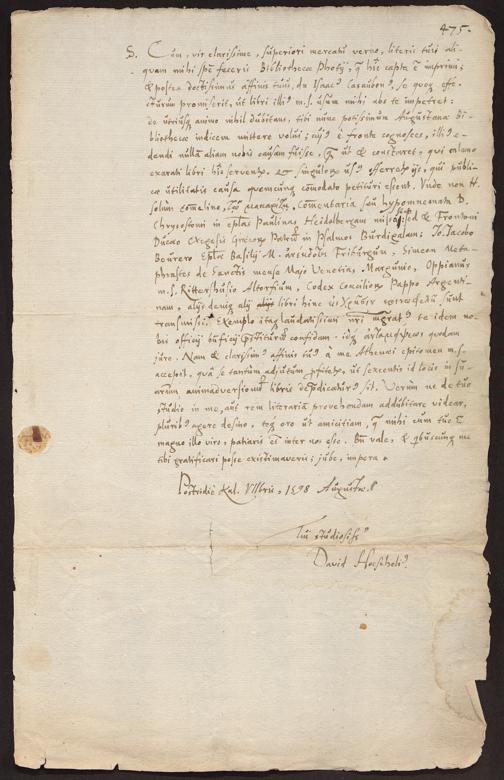 475.
S. Cum, vir clarissime, superiori mercatu verno, literis tuis ali-
quam mihi spē feceris Bibliothecæ Photij, q̄ hic capta ē imprimi;
& postea doctissimus affinis tuus, dn Isaac9 Casaubon9, se quoq; effe-
cturum promiserit, ut libri illi9 m.s. usum mihi abs te impetret:
de utriusq; animo nihil dubitans, tibi nunc potissimum Augustanæ bi-
bliothecæ indicem mittere volui; cuj9 è fronte cognosces, illi9 e-
dendi nullā aliam nobis causam fuisse, ut & constaret, qui calamo
exarati libri hic servent, et singulor usq efferat ijs, qui publi-
cæ utilitatis causa quemcunq; com̄odate petituri essent. Unde non H.
solum Comelino, Commentaria seu hypomnemata D.
Chrysostomi in eplas Paulinas Heidelbergam missa; sed & Frontoni
Ducæo Exegesis Græcor Patrū in Psalmos Burdigalam; Jo. Jacobo
Beurero Eplas Basilij M. Friburgum, Simeon Meta-
phrastes de Sanctis mense Majo Venetias, Margunio, Oppianus
m.s. Rittershusio Altorfium, Codex Concilior Pappo Argenti-
nam, alijs deniq; alij libri hinc sunt
transmissi. Exemplo itaq; laudatissimi te idem no-
bis officij confidam. idq; quodam
jure. Nam & clarissim9 affinis tu9 à me Athenæi epitomen m.s.
accepit, quâ se tantum adjutum ut sexcentis id locis in su-
arum animadversionū libris sit. Verùm ne de tuo
studio in me, aut rem literariā provehendam addubitare videar,
plurib9 agere desino, teq; oro ut amicitiam, q̄ mihi cum tuo ē
magno illo viro, patiaris et inter nos esse. Bn vale, & qbuscunq; me
tibi gratificari posse existimaveris; jube, impera.
Postridie Kal. VIIbris, 1598 Augustæ.
Tui studiosiss9
David Hoescheli9.